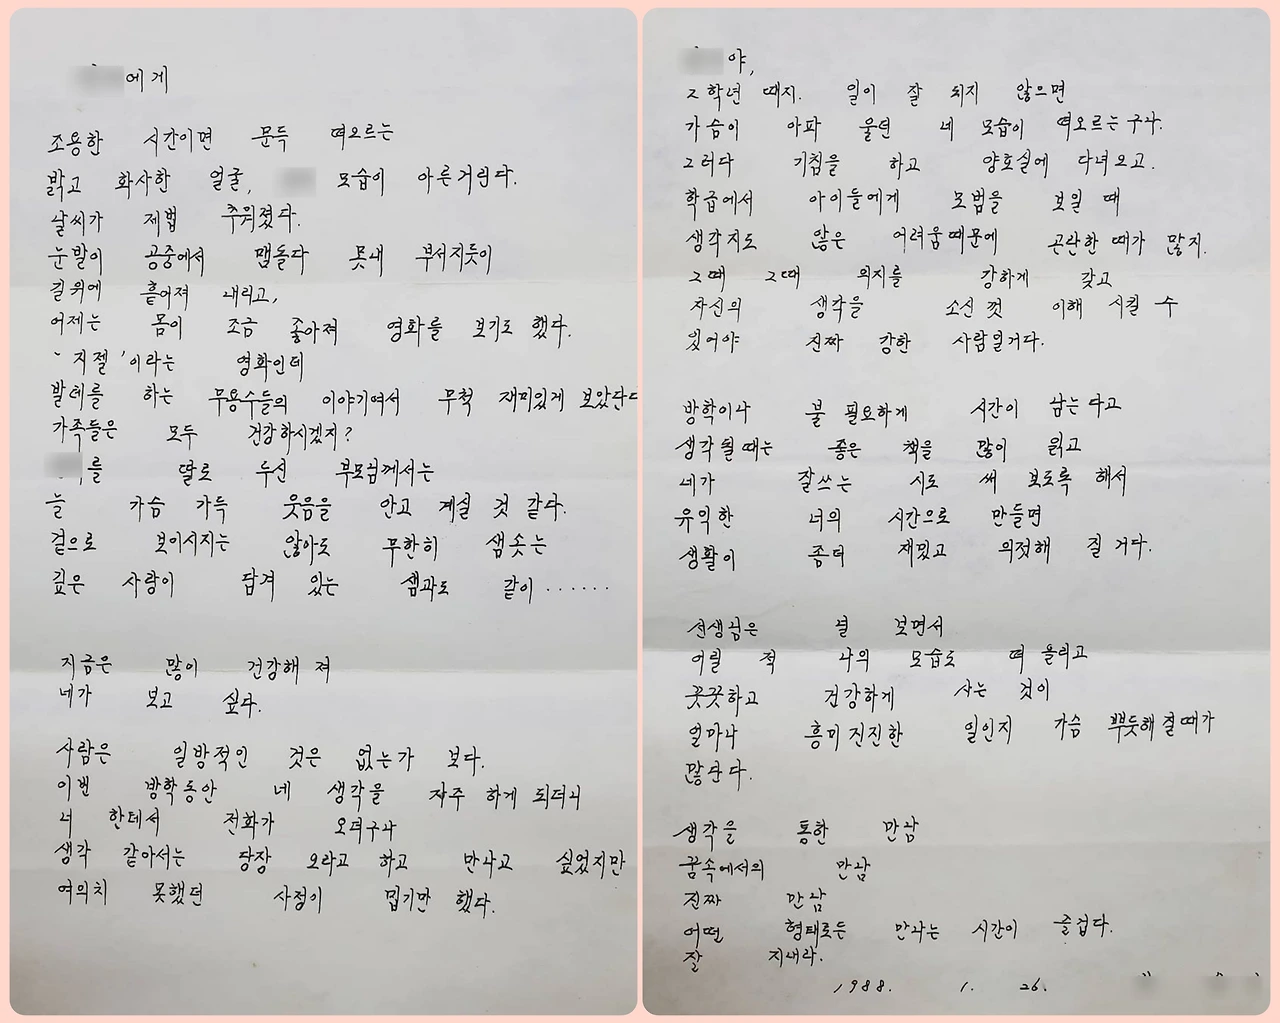 에게
조용한 시간이면 문득 떠오르는
밝고 화사한 얼굴, 모습이 아른거린다.
날씨가 제법 추워졌다.
눈발이 공중에서 맴돌다 못내 부서지듯이
길위에 흩어져 내리고,
어제는 몸이 조금 좋아져 영화를 보기도 했다.
'지젤'이라는 영화인데
발레를 하는 무용수들의 이야기여서 무척 재미있게 보았단다
가족들은 모두 건강하시겠지?
를 딸로 두신 부모님께서는
늘 가슴 가득 웃음을 안고 계실 것 같다.
겉으로 보이시지는 않아도 무한히 샘솟는
깊은 사랑이 담겨 있는 샘과도 같이......
지금은 많이 건강해 져
네가 보고 싶다.
사람은 일방적인 것은 없는가 보다.
이번 방학동안 네 생각을 자주 하게 되더니
너 한테서 전화가 오더구나
생각 같아서는 당장 오라고 하고 만나고 싶었지만
여의치 못했던 사정이 밉기만 했다.
야,
2학년 때지. 일이 잘 되지 않으면
가슴이 아파 울던 네 모습이 떠오르는구나.
그러다 기침을 하고 양호실에 다녀오고.
학급에서 아이들에게 모범을 보일 때
생각지도 않은 어려움때문에 곤란한 때가 많지.
그때 그때 의지를 강하게 갖고
자신의 생각을 소신 껏 이해 시킬 수
있어야 진짜 강한 사람일거다.
방학이나 불 필요하게 시간이 남는다고
생각될때는 좋은 책을 많이 읽고
네가 잘쓰는 시로 써 보도록 해서
유익한 너의 시간으로 만들면
생활이 좀더 재밌고 의젓해 질 거다.
선생님은 널 보면서
어릴 적 나의 모습도 떠 올리고
꿋꿋하고 건강하게 사는 것이
얼마나 흥미진진한 일인지 가슴 뿌듯해 질때가
많단다.
생각을 통한 만남
꿈속에서의 만남
진짜 만남
어떤 형태로든 만나는 시간이 즐겁다.
잘 지내라.
1988. 1. 26.